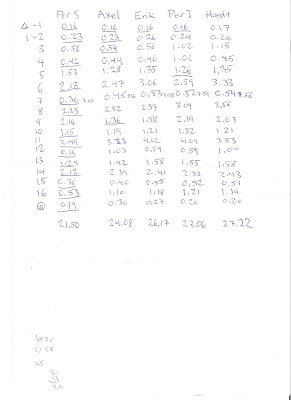 Per S Axel Erik Per J Hardt
△ -1 0.16 0.16 0.16 0.16 0.17
1-2 0.23 0.23 0.26 0.24 0.26
3 0.56 0.54 0.56 1.02 1.15
4 0.42 0.44 0.46 1.01 0.45
5 1.53 1.28 1.35 1.26 1.35
6 2.13 2.47 3.06 2.59 3.33
7 0.36 0.45 0.53 0.52 0.54
8 2.23 2.52 2.37 3.09
9 2.16 1.36 1.58 2.19 2.03
10 1.15 1.19 1.21 1.32 1.21
11 2.49 3.33 4.02 4.04 3.53
12 0.36 1.03 0.59 1.00
13 1.24 1.42 1.58 1.55 1.58
14 2.12 2.39 2.41 2.33 2.43
15 0.36 0.40 0.55 0.52 0.51
16 0.53 1.10 1.18 1.21 1.19
0.19 0.30 0.27 0.20 0.20
21,50 24,08 26,17 27,06 27,22